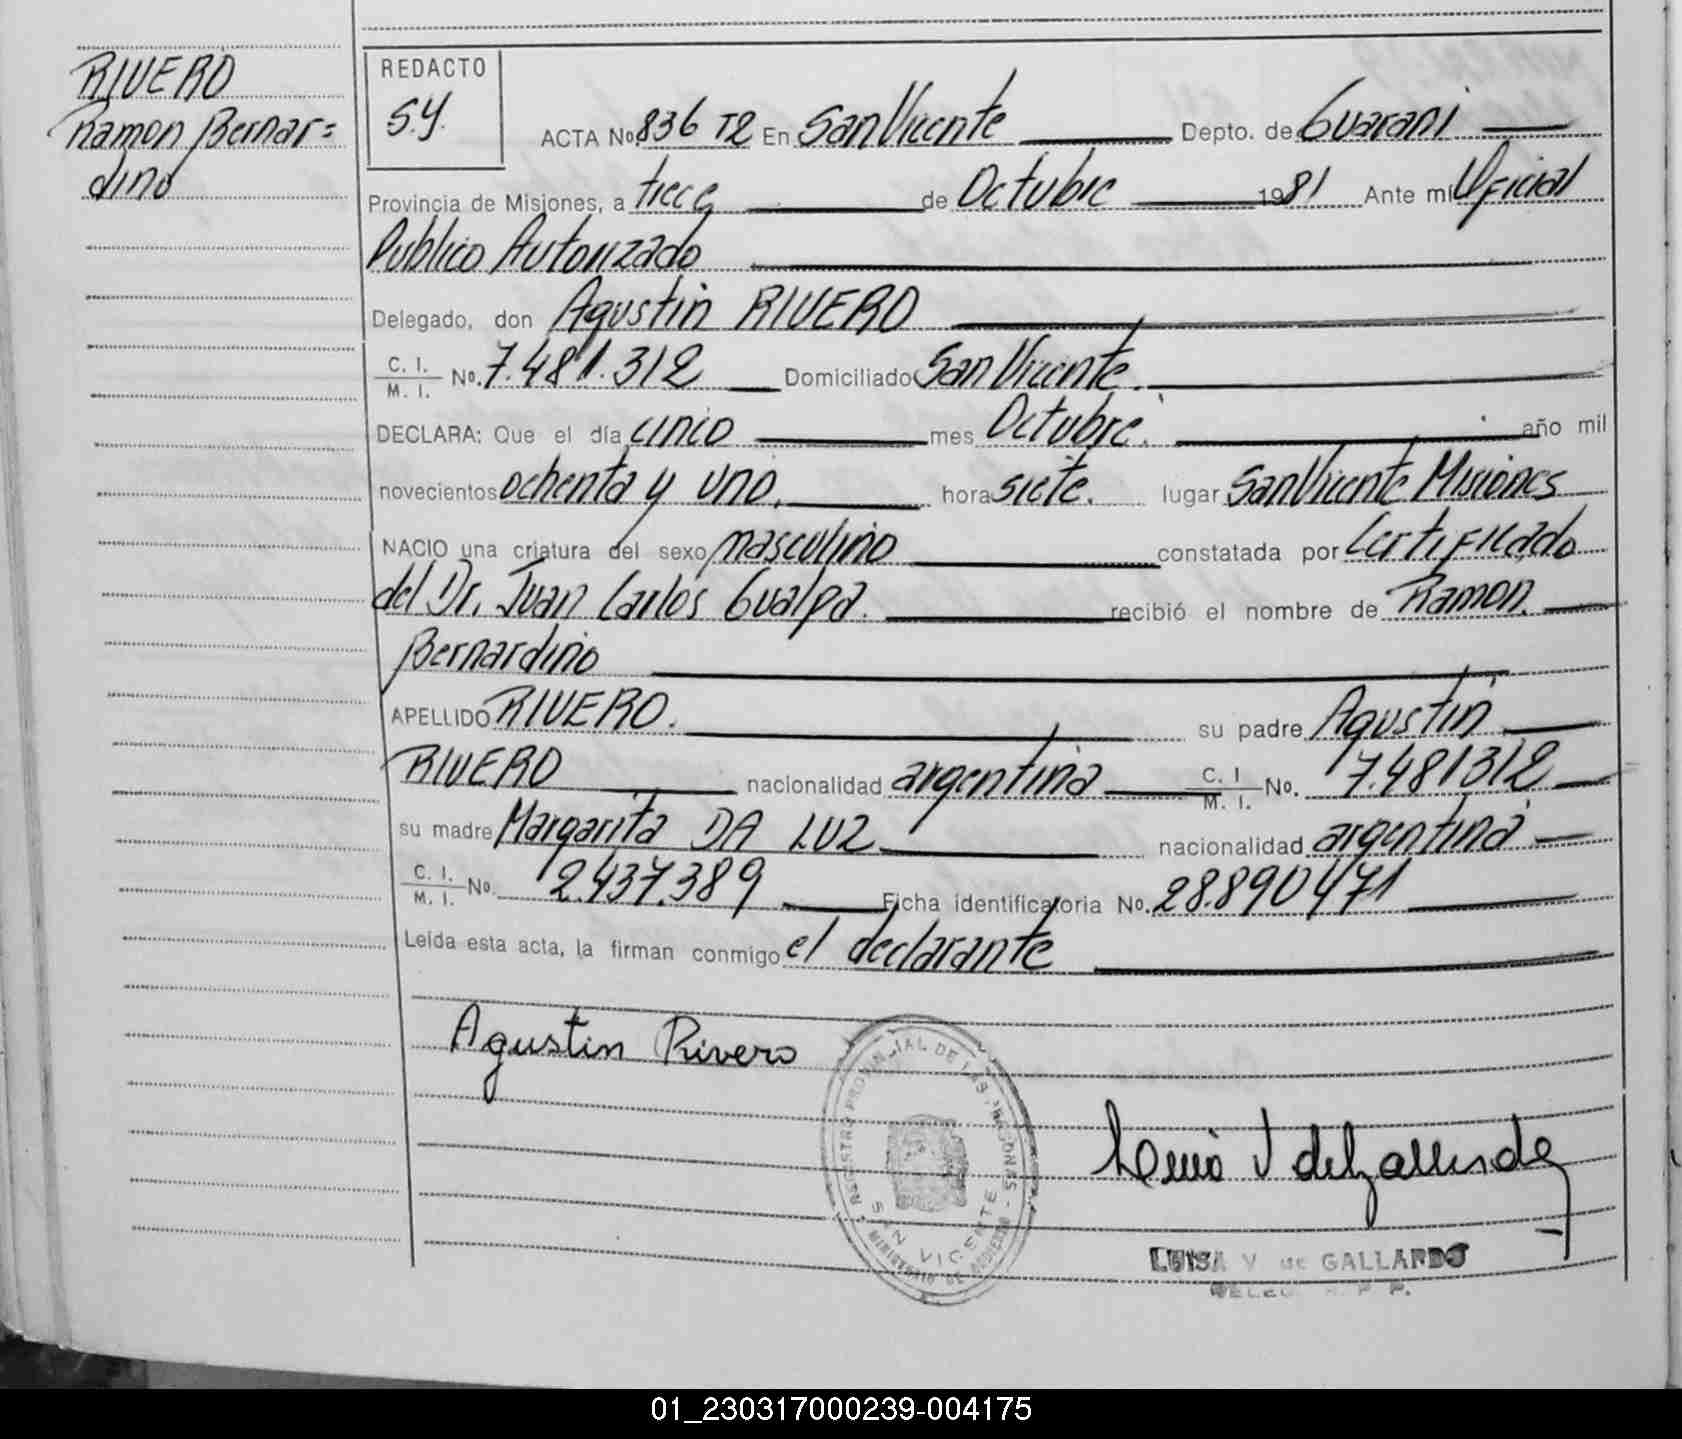 RIVERO
Ramon Bernar=
dino
REDACTO
S.Y.
ACTA No. 836 T2 En San Vicente Depto. de Guarani
Provincia de Misiones, a trece de Octubre 1981 Ante mí Oficial
Publico Autorizado
Delegado, don Agustin RIVERO
C. I. / M. I. No. 7.481.312 Domiciliado San Vicente.
DECLARA: Que el día cinco mes Octubre. año mil
novecientos ochenta y uno, hora siete. lugar San Vicente Misiones
NACIO una criatura del sexo masculino constatada por Certificado
del Dr. Juan Carlos Gualpa. recibió el nombre de Ramon.
Bernardino
APELLIDO RIVERO. su padre Agustin
RIVERO nacionalidad argentina C. I / M. I. No. 7.481312
su madre Margarita DA LUZ nacionalidad argentina
C. I. / M. I. No. 2.437.389 Ficha identificatoria No. 28.890471
Leída esta acta, la firman conmigo el declarante
Agustin Rivero
REGISTRO PROVINCIAL DE LAS PERSONAS
SAN VICENTE
MINISTERIO DE GOBIERNO
LUISA V de GALLARDO
01_230317000239-004175